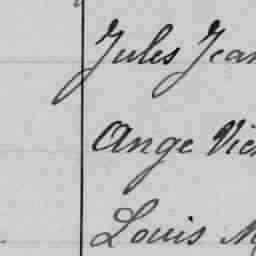 Jules Jean
Ange Vic
Louis M